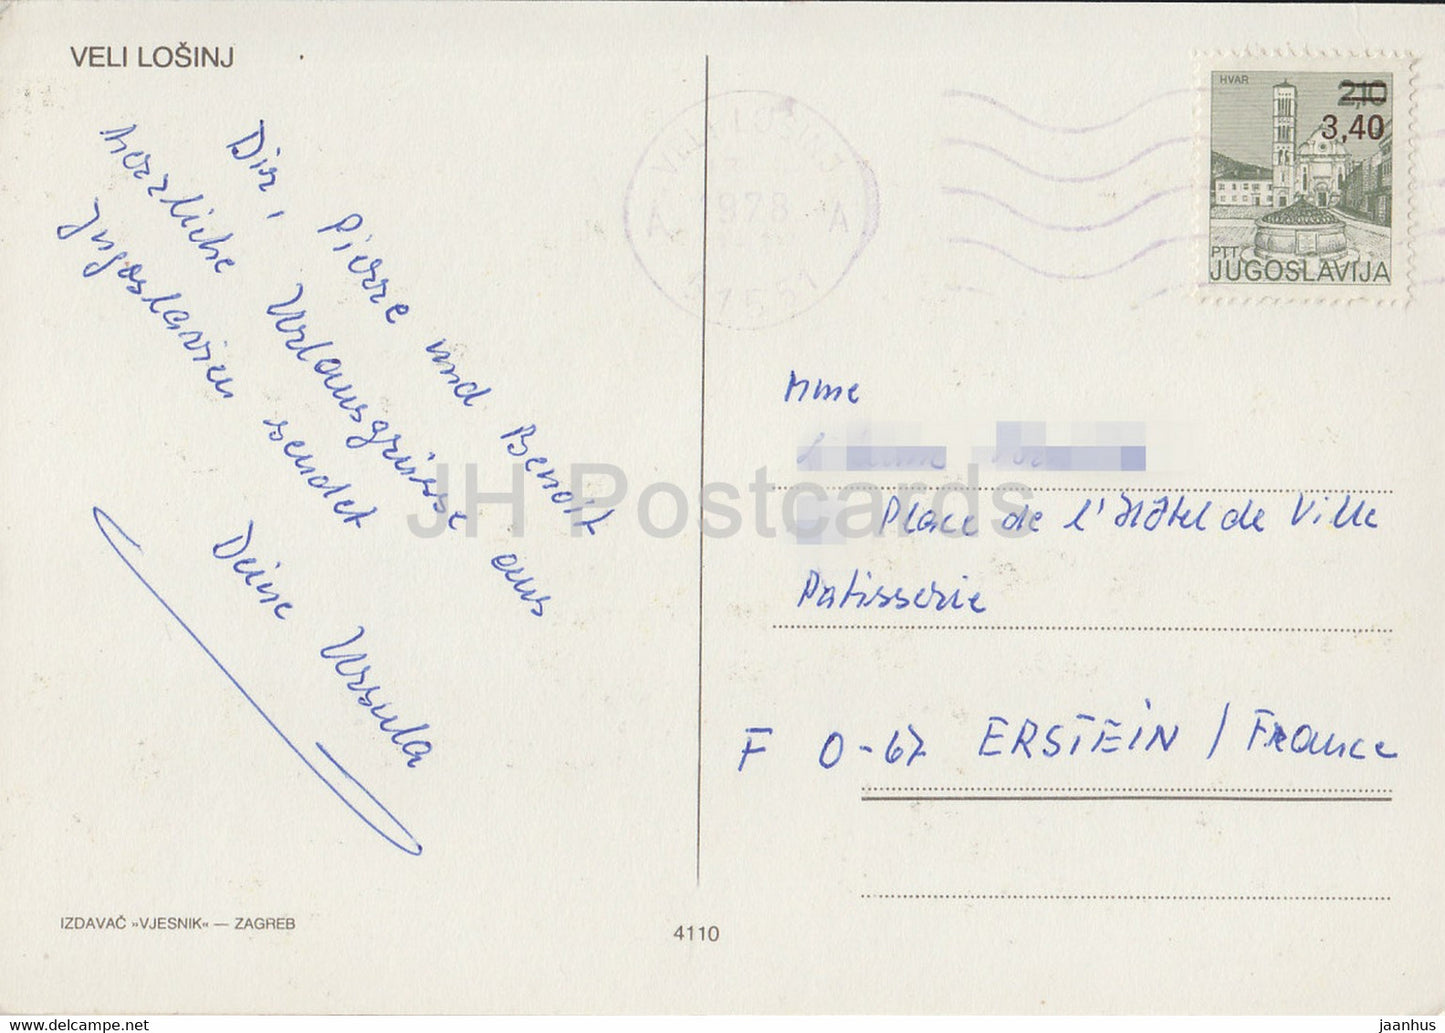 VELI LOŠINJ
Dir, Pierre und Benoit
herrliche Urlausgrüsse aus
Jugoslavien sendet
Deine Ursula
IZDAVAČ »VJESNIK« — ZAGREB
4110
1978
A A
HVAR
2,10
3,40
PTT
JUGOSLAVIJA
Mme
Place de l'Hôtel de Ville
Patisserie
F 0-67 ERSTEIN / France
JH Postcards
https://www.delcampe.net
jaanhus